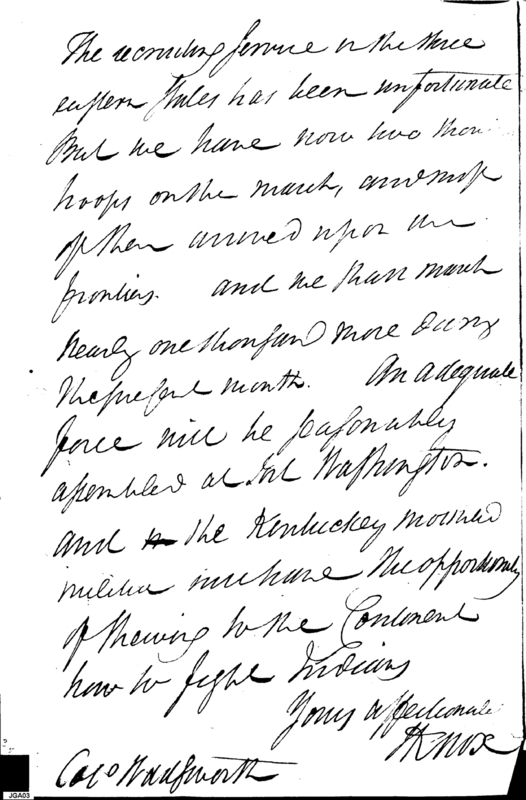 The recruiting service in the three
eastern States has been unfortunate
But we have now two thou
troops on the march, and most
of them arrived upon the
frontiers. and we shall march
nearly one thousand more during
the present month. An adequate
force will be seasonably
assembled at Fort Washington.
and the Kentuckey mounted
militia will have the opportunity
of shewing to the Continent
how to fight Indians
Yours affectionate
HKnox
Colo Wadsworth
JGA03